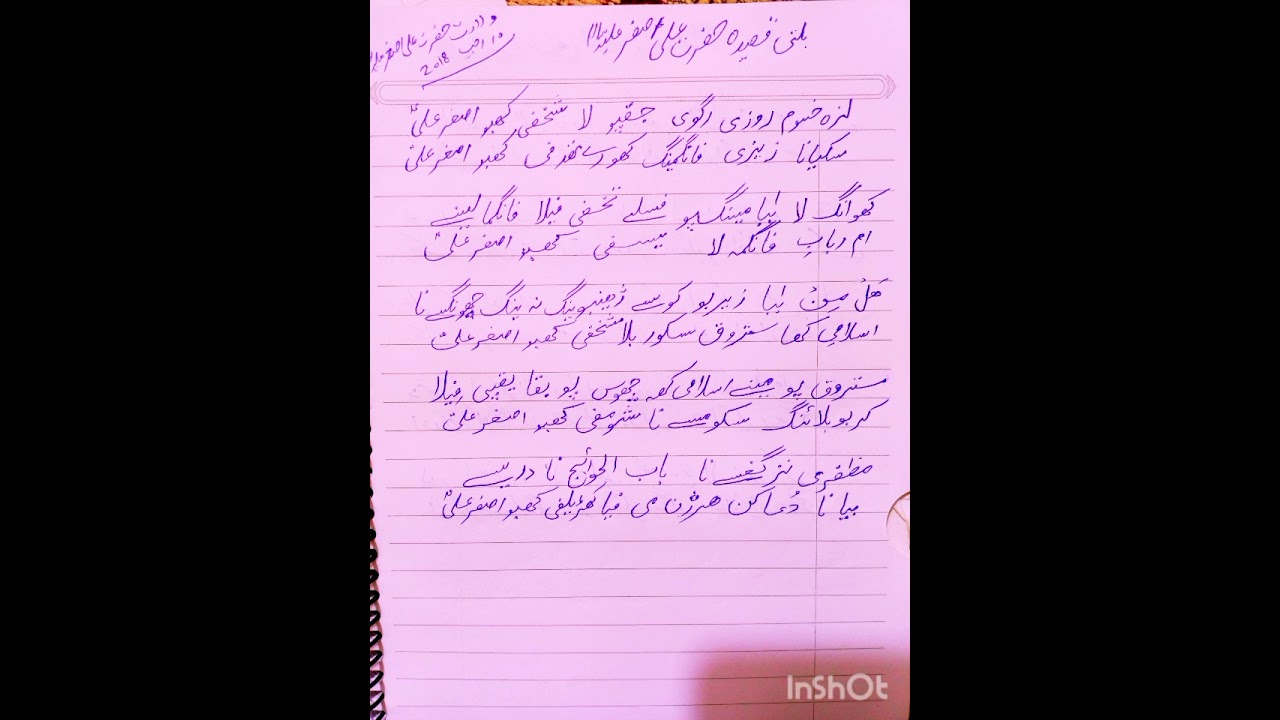 بلتی قصیدہ حضرت علی اصغر علیہ السلام
ولادت حضرت علی اصغر علیہ
۱۰ رجب 2018
لزہ خنوم روزی رگوی جقپو لا شخفی کھبو اصغر علیؑ
سکیانا زیزی فانگمینگ کھورے کھبو اصغر علیؑ
کھوانگ لا بیا مینگ پو فسلے تخفی فیلا فانگما لینے
ام رباب فانگمہ لا میسفی کھبو اصغر علیؑ
ھَل مِن بیا زیربو کوسے نہ ینگ چونگسے نا
اسلامی کھا ستروق سکور بلا شخفی کھبو اصغر علیؑ
ستروق پو مینے اسلامی کھہ چھوس پو بقا یقپی فیلا
کربوبلائنگ سکومسے نا شرمفی کھبو اصغر علیؑ
مظفری باب الحوائج نا دریسے
بیا نا دُعا کن ھرژن می کھبو اصغر علیؑ
InShOt